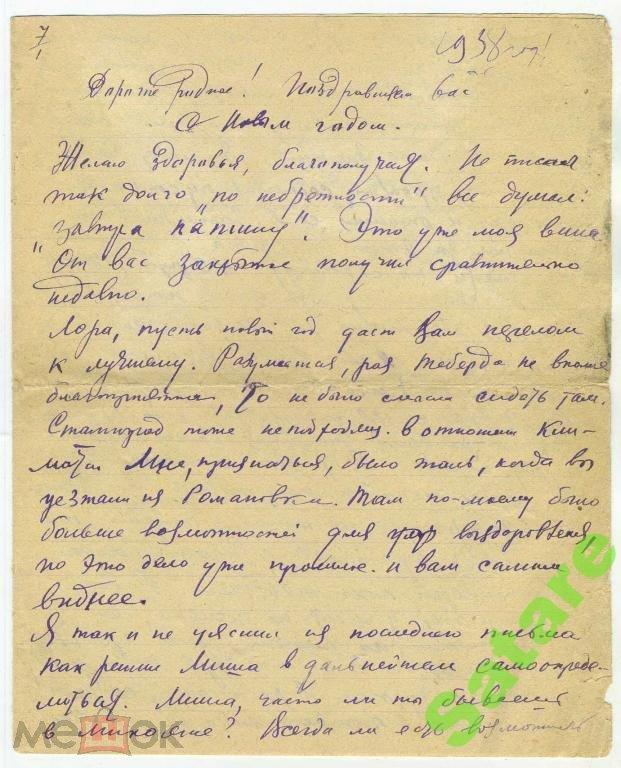 7/1
1938 год!
Дорогие родные! Поздравляем вас
С Новым годом.
Желаю здоровья, благополучия. Не писал
так долго „по небрежности" все думал:
завтра напишу". Это уже моя вина
"От вас закрытое получил сравнительно
недавно.
Лора, пусть новый год даст Вам перелом
к лучшему. Разумеется, раз Теберда не вполне
благоприятна, то не было смысла сидеть там.
Сталинград тоже неподходящ. в отношении кли-
мата Мне, признаться, было жаль, когда вы
уезжали из Романовки. Там по-моему было
больше возможностей для выздоровления,
но это дело уже прошлое. и вам самим
виднее.
Я так и не уяснил из последнего письма
как решил Миша в дальнейшем самоопреде-
литься. Миша, часто ли ты бываешь
в Микояне? Всегда ли есть возможность
Satare
мешок